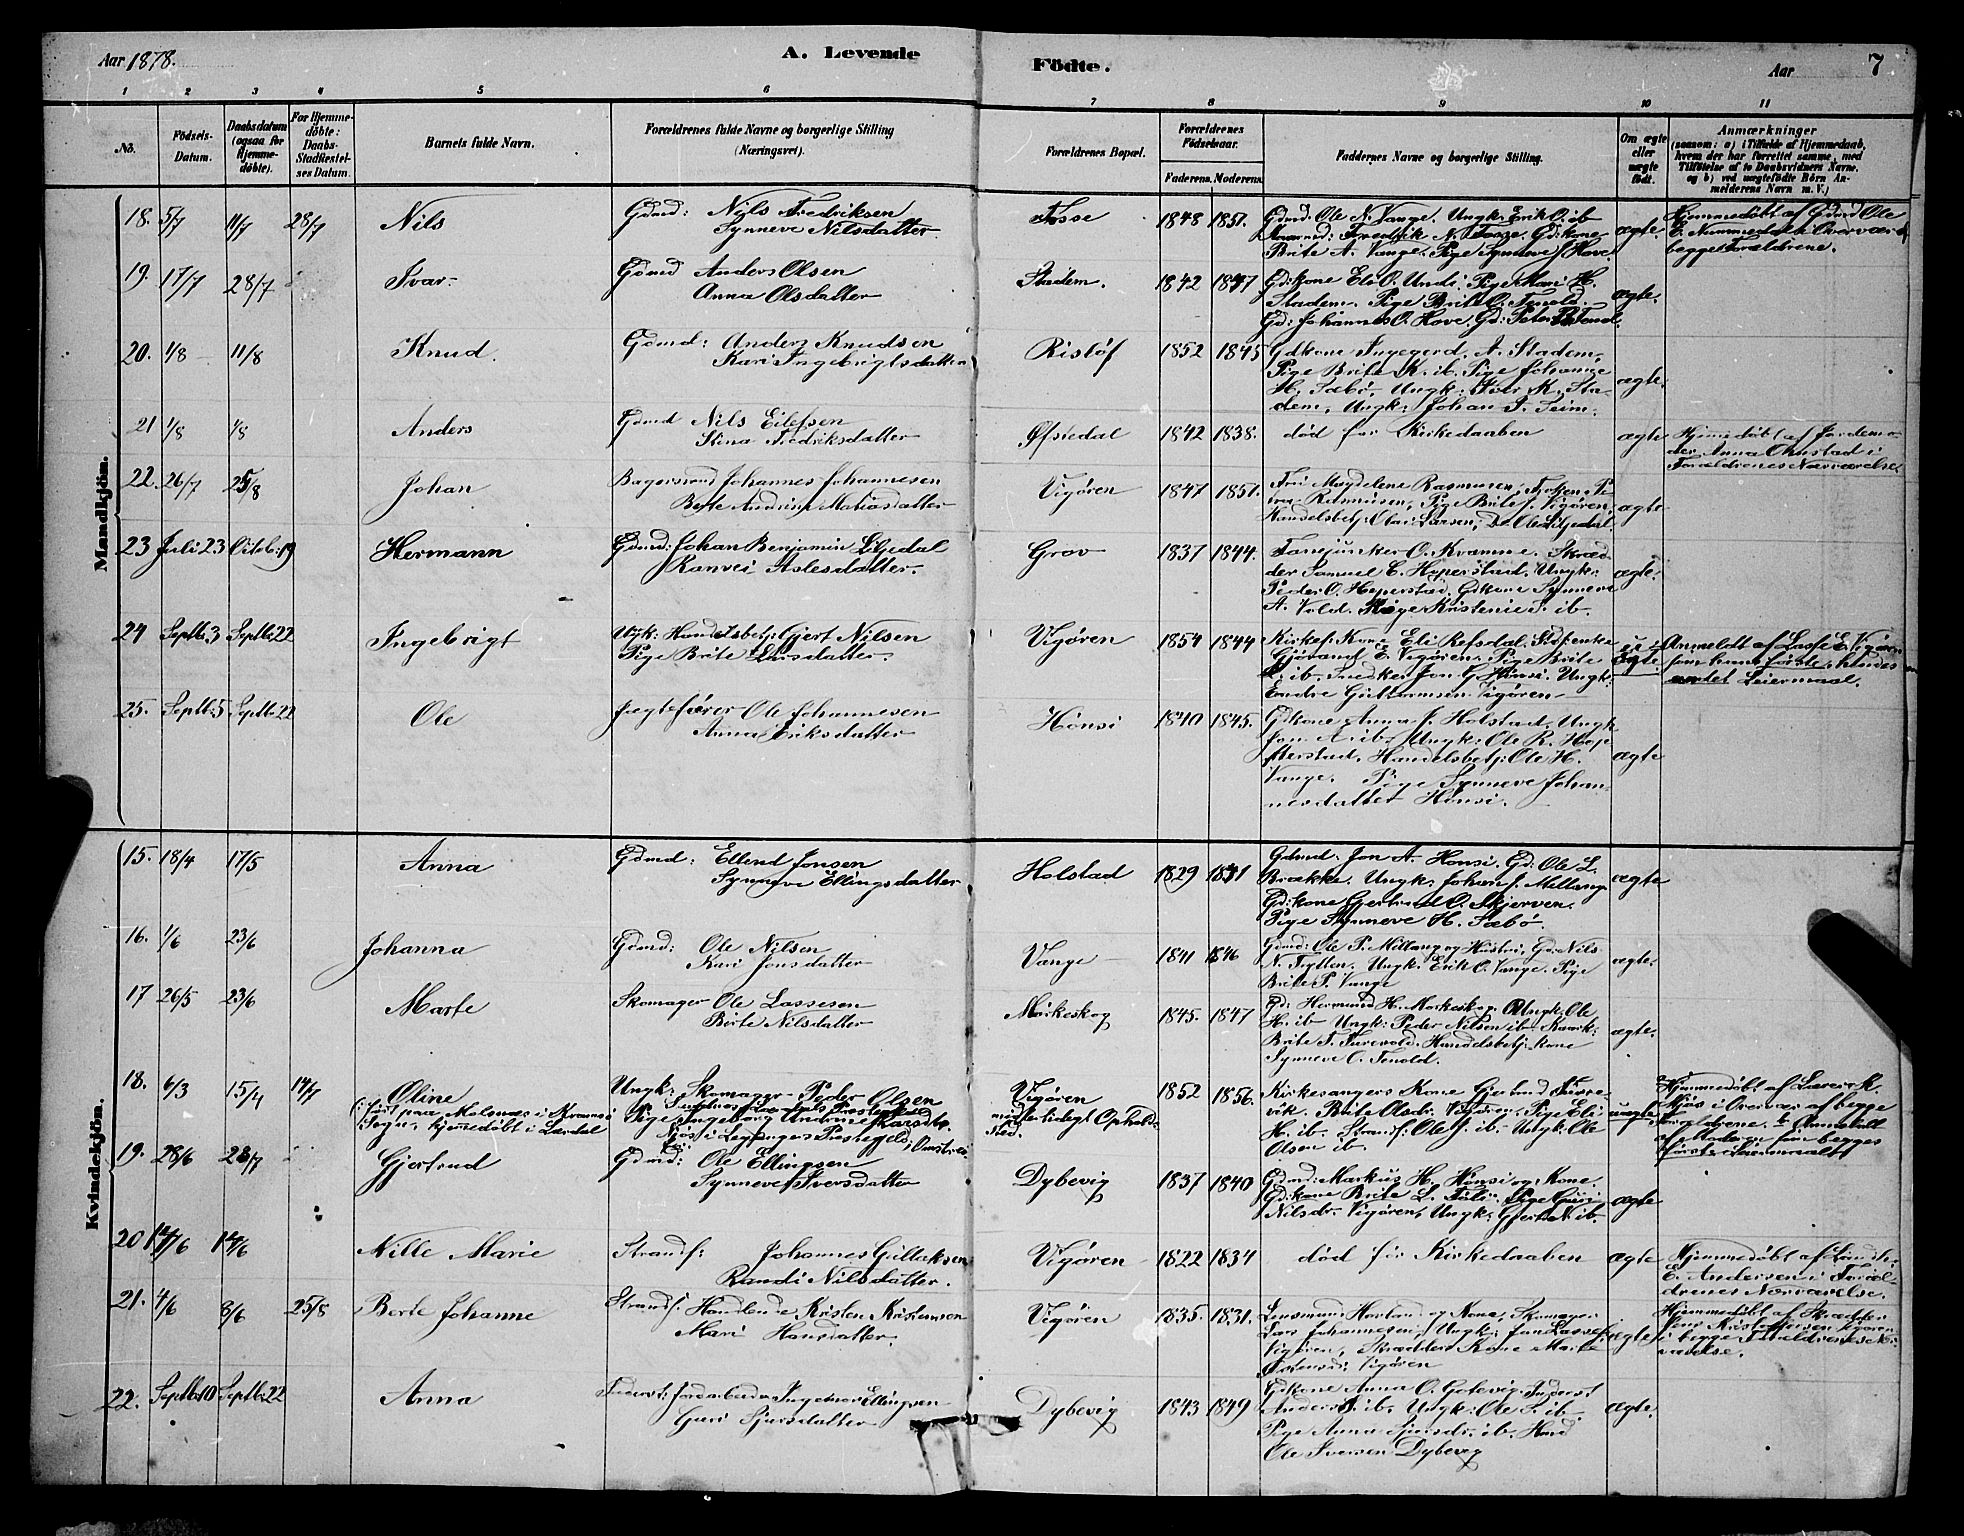 Aar 1878.
A. Levende
Födte.
Aar
7
1 2 3 4 5 6 7 8 9 10 11
No.
Födsels-
Datum.
Daabsdatum
(ogsaa for
Hjemme-
döbte).
For Hjemme-
döbte:
Daabs-
Stadfæstel-
ses Datum.
Barnets fulde Navn.
Forældrenes fulde Navne og borgerlige Stilling
(Næringsvei).
Forældrenes Bopæl.
Forældrenes
Födselsaar.
Faderens. Moderens.
Faddernes Navne og borgerlige Stilling.
Om ægte
eller
uægte
födt.
Anmærkninger
(saasom: a) i Tilfælde af Hjemmedaab,
hvem der har forrettet samme, med
Tilföielse af to Daabsvidners Navne,
og b) ved uægtefödte Börn An-
melderens Navn m. V.)
Mandkjön.
18. 5/7 11/7 28/7 Nils
Gdmd: Nils Fredriksen
Synneve Nilsdatter
Fosse 1848 1851.
Gdmd: Ole N. Vange. Ungk: Erik O. ib
Fredrik N. Fosse. Gdkone
Brite A. Vange. Pige Synneve J. Hove.
ægte.
Hjemmedøbt af Gdmd Ole
E. Nummedal i Overvær af
begge Forældrene.
19. 17/7 28/7 Ivar
Gdmd Anders Olsen
Anna Olsdatter
Stadem. 1842 1847
Gdkone Eli O. Undi. Pige Mari H.
Stadem. Pige Brite O. Tenold.
Gd: Johannes O. Hove. Gd: Peter Tenol.
ægte.
20. 1/8 11/8 Knud.
Gdmd: Anders Knudsen
Kari Ingebrigtsdatter
Risløf 1852 1845
Gdkone Ingegerd. A. Stadem,
Pige Brite K. ib. Pige Johanne
H. Sæbø, Ungk: Iver K. Sta-
dem, Ungk: Johan I. Feim.
ægte.
21 1/8 1/8 Anders
Gdmd Nils Eilefsen
Stina Fredriksdatter
Øfsedal 1842 1838.
død før Kirkedaaben
ægte
Hjemmedøbt af Jordemo-
der Anna Ohnstad i
Forældrenes Nærværelse.
22. 26/7 25/8 Johan
Bagersvend Johannes Johannesen
Berte Andrine Matiasdatter
Vigøren 1847 1851.
Fru Magdelene Rasmusen, Frøken Pe-
tra Rasmusen, Pige Brite J. Vigøren,
Handelsbetj: Larsen, Ole Liljedal
ægte
23 Juli 23 Octob: 19 Hermann
Gdmd: Johan Benjamin Liljedal
Ranvei Aslesdatter.
Grov 1837 1844.
Fanejunker O. Kvamme. Skræd-
der Samuel E. Hoperstad. Ungk:
Peder O. Hoperstad. Gdkone Synneve
A. Vold. Pige Kristenie I. ib.
ægte.
24 Septb: 3 Septb: 22 Ingebrigt
Ungk: Handelsbetj: Gjert Nilsen
Pige Brite Larsdatter.
Vigøren 1854 1844
Kirkes: Kone Eli Refsdal,
E. Vigøren. Pige Brite
ib. Snedker Jon G. Hønsi. Ungk:
Endre Guttormsen Vigøren
Anmeldt af Lasse E. Vigøren
som hans første, hendes
andet Leiermaal.
25. Septb: 5 Septb: 22 Ole
Jægtefører Ole Johannesen
Anna Eriksdatter
Hønsi 1840 1845.
Gdkone Anna J. Holstad. Ungk
Jon A. ib. Ungk: Ole R. Hop-
perstad. Handelsbetj: Ole H.
Vange. Pige Synneve Johan-
nesdatter Hønsi.
ægte
Kvindekjön.
15. 18/4 17/5 Anna
Gdmd: Ellend Jonsen
Synneve Ellingsdatter
Holstad 1829 1831
Gdmd: Jon A. Hønsi. Gd: Ole L.
Brække. Ungk: Johan J. Mellang
Gdkone Gjertrud O. Skjerven.
Pige Synneve H. Sæbø.
ægte
16. 1/6 23/6 Johanna
Gdmd: Ole Nilsen
Kari Jonsdatter
Vange 1841 1846
Gdmd: Ole P. Mellang og Hustri, Gd: Nils
N. Tryllen. Ungk: Erik O. Vange. Pige
Brite P. Vange
ægte.
17 26/5 23/6 Marte
Skomager Ole Lassesen
Birte Nilsdatter
Mørkeskog 1845. 1847
Gd: Hermund H. Mørkeskog. Ungk: Ole
H. ib Ungk: Peder Nilsen ib.
Brite T. Turevold. Handelsbetj: Kone
Synneve O. Tenold.
ægte.
18. 6/3 15/4 14/7 Oline
(født paa Malsnæs i Kvamsø
Sogn, hjemmedøbt i Lærdal
Ungk: Skomager Peder Olsen
Pige Ingeborg Andrine Larsdtr.
Njøs i Leganger Præstegjeld
Vigøren
midlertidigt Ophold-
sted.
1852 1856.
Kirkesangers Kone Gjertrud Tusse-
vik. Brite Olsdr. Vigøren. Pige Eli
H. ib. Strandf: Ole J. ib. Ungk: Ole
Olsen ib.
uægte
Hjemmedøbt af Lærer K.
Njøs i Overvær af begge
Forældrene. Anmeldt
af Moderen som begges
første Leiermaal
19. 28/6 28/7 Gjertrud
Gdmd: Ole Ellingsen
Synneve Iversdatter
Dybevig 1837 1840
Gdmd: Markus H. Hønsi og Kone
Gdkone Brite L. Tuli. Pige Guri
Nilsdr. Vigøren, Ungk: Gjert N. ib.
ægte
20 14/6 14/6 Nille Marie
Strandf: Johannes Gullaksen
Randi Nilsdatter.
Vigøren 1822 1834
død før Kirkedaaben
ægte
Hjemmedøbt af Landh:
E. Andersen i Foræl-
drenes Nærværelse.
21. 4/6 8/6 25/8 Berte Johanne
Strandf. Handlende Kristen Kristensen
Mari Hansdatter.
Vigøren 1835. 1831.
Lensmand Hovland og Kone, Skomager
Lars Johannesen, Ungk: Jon Lasses.
Vigøren, Skrædder Kone Marte
Vigøren
ægte
Hjemmedøbt af Skrædder
Jens Kristoffersen Vigøren
i begge Forældrenes Nær-
værelse.
22. Septb: 10 Septb: 22 Anna
Inderst: Jordarbeider Ingebrigt Ellingsen
Guri Sjursdatter
Dybevig 1843 1849
Gdkone Anna O. Gotevig. Inderst
Anders ib. Ungk: Ole S. ib.
Pige Anna Sjursdr. ib.
Ole Iversen Dybevig
ægte.